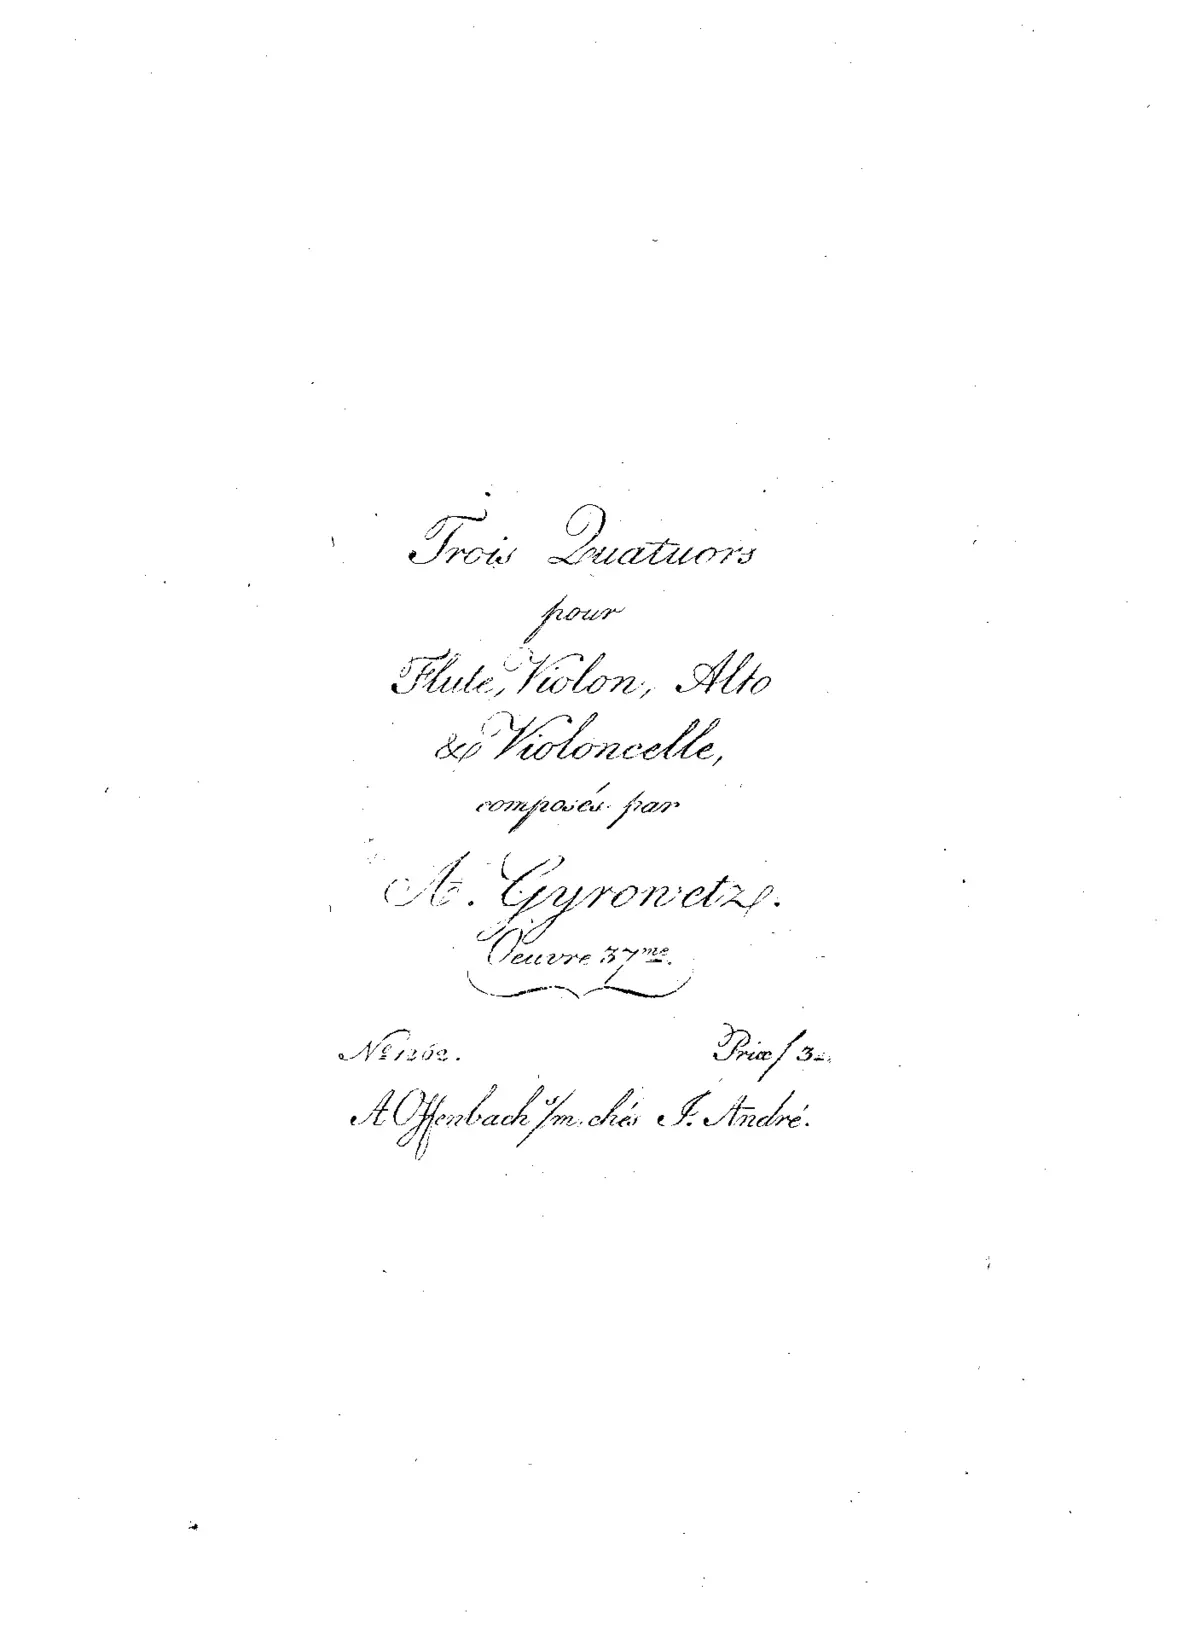 Trois Quatuors
pour
Flute, Violon, Alto
& Violoncelle,
composés par
A. Gyrowetz.
Oeuvre 37me.
No 1262. Prix f 3
A Offenbach s/m. chés J. André.